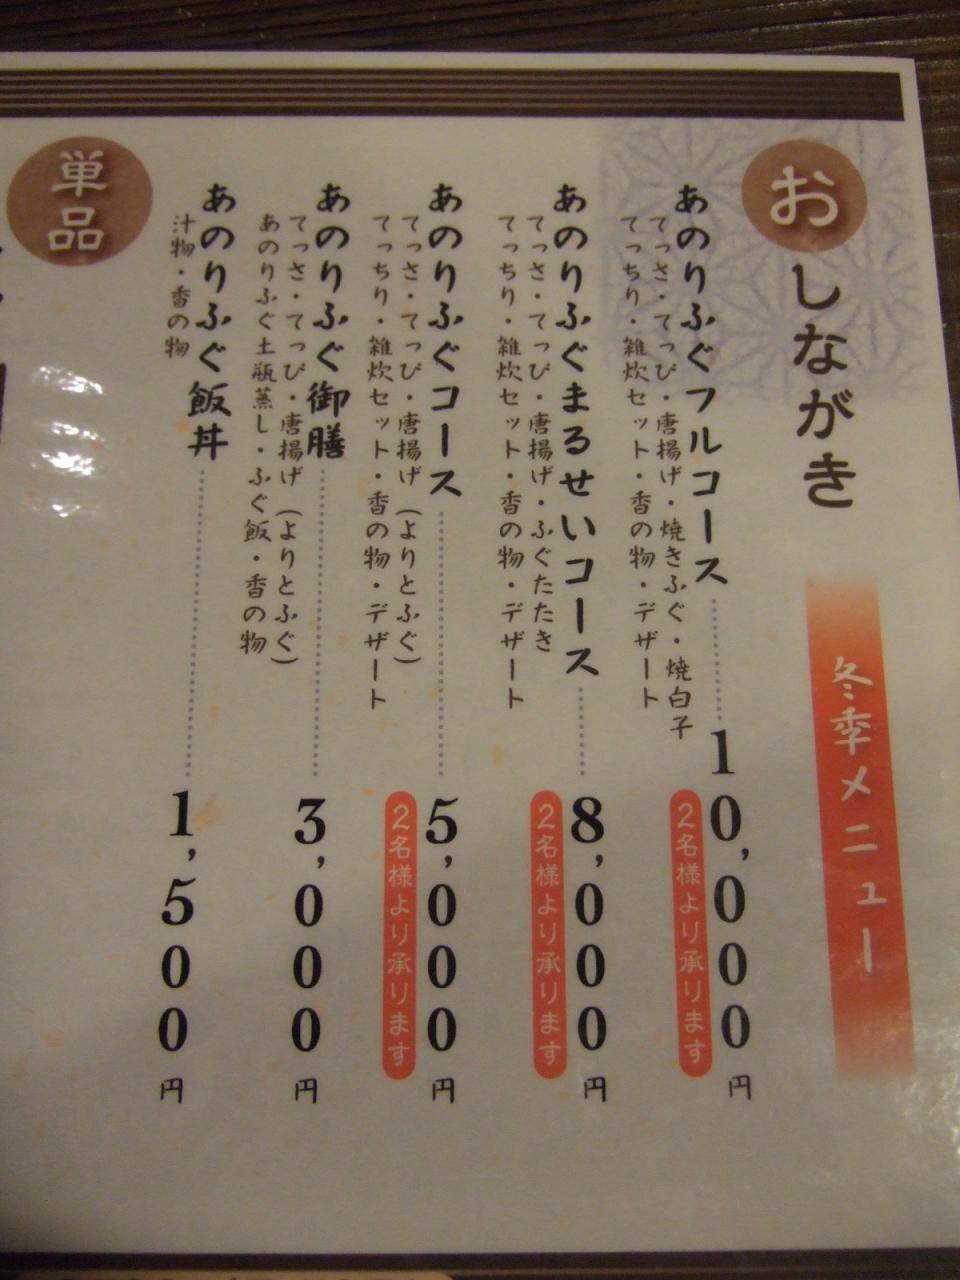 おしながき
冬季メニュー
あのりふぐフルコース 10,000円
てっさ・てっぴ・唐揚げ・焼きふぐ・焼白子
てっちり・雑炊セット・香の物・デザート
2名様より承ります
あのりふぐまるせいコース 8,000円
てっさ・てっぴ・唐揚げ・ふぐたたき
てっちり・雑炊セット・香の物・デザート
2名様より承ります
あのりふぐコース 5,000円
てっさ・てっぴ・唐揚げ(よりとふぐ)
てっちり・雑炊セット・香の物・デザート
2名様より承ります
あのりふぐ御膳 3,000円
てっさ・てっぴ・唐揚げ(よりとふぐ)
あのりふぐ土瓶蒸し・ふぐ飯・香の物
あのりふぐ飯丼 1,500円
汁物・香の物
単品